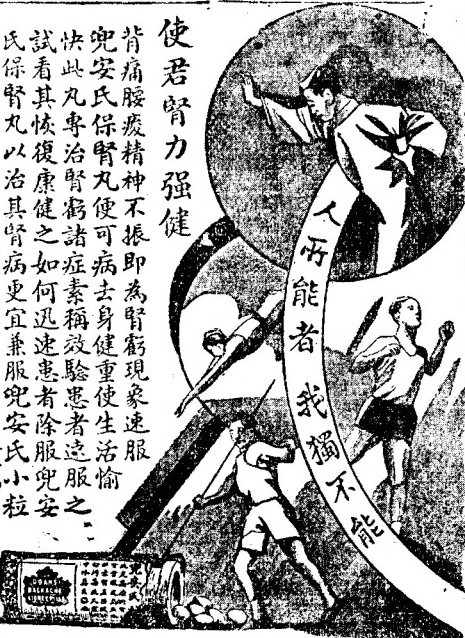 使君腎力强健
背痛腰痠精神不振即為腎虧現象速服
兜安氏保腎丸便可病去身健重使生活愉
快此丸專治腎虧諸症素稱效驗患者速服之
試看其恢復康健之如何迅速患者除服兜安
氏保腎丸以治其腎病更宜兼服兜安氏小粒
人所能者我獨不能
DOAN'S
BACKACHE
KIDNEY PILLS
兜安氏